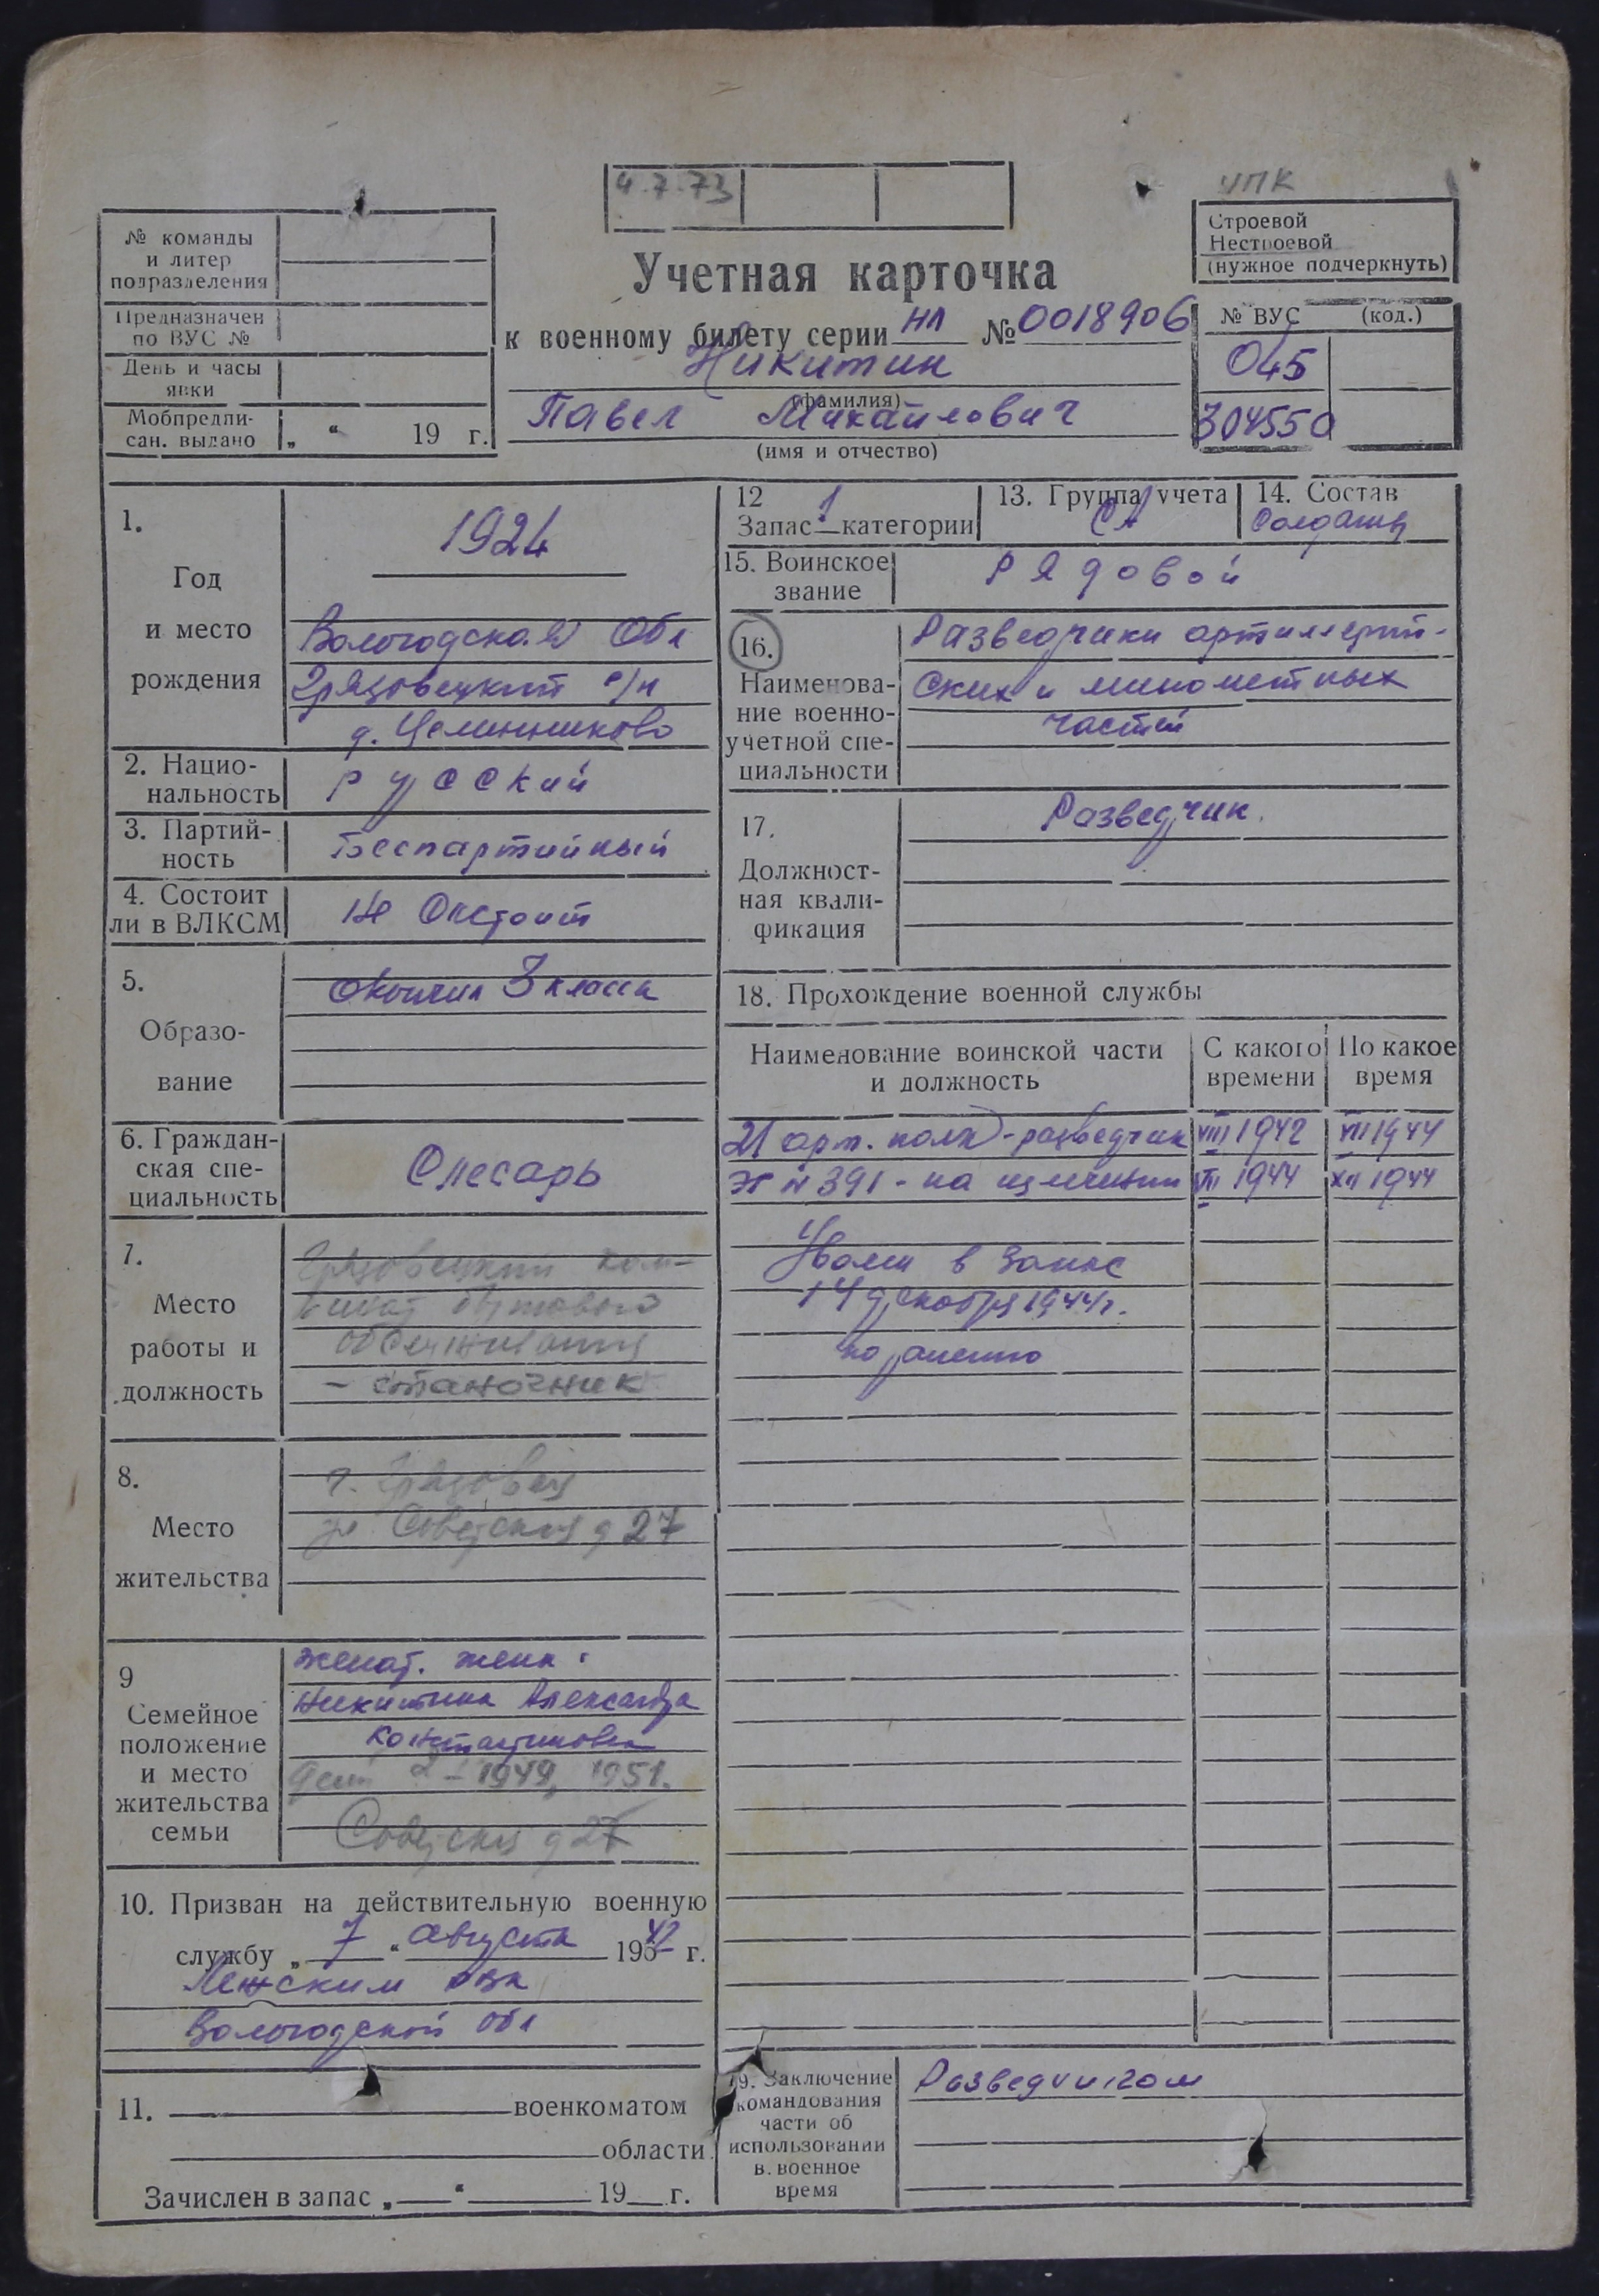 4.7.73
УПК
№ команды
и литер
подразделения
Предназначен
по ВУС №
День и часы
явки
Мобпредпи-
сан. выдано „ “ 19 г.
Учетная карточка
к военному билету серии НЛ № 0018906
Никитин
(фамилия)
Павел Михайлович
(имя и отчество)
Строевой
Нестроевой
(нужное подчеркнуть)
№ ВУС (код.)
045
304550
1.
Год
и место
рождения
1924
Вологодская Обл
Грязовецкий р/н
2. Нацио-
нальность
русский
3. Партий-
ность
Беспартийный
4. Состоит
ли в ВЛКСМ
Не Состоит
5.
Образо-
вание
окончил 3 класса
6. Граждан-
ская спе-
циальность
Слесарь
7.
Место
работы и
должность
Грязовецкий ком-
бинат бытового
обслуживания
– станочник
8.
Место
жительства
г. Грязовец
ул Советская д 27
9
Семейное
положение
и место
жительства
семьи
женат. жена:
Никитина Александра
Константиновна
дети 2 – 1949, 1951.
Советская д 27
10. Призван на действительную военную
службу „ 7 “ августа 1942 г.
Лежским рвк
Вологодской обл
11. военкоматом
области.
Зачислен в запас „ “ 19 г.
12
Запас 1 категории
13. Группа учета
СА
14. Состав
Солдаты
15. Воинское
звание
Рядовой
16.
Наименова-
ние военно-
учетной спе-
циальности
Разведчики артиллерий-
ских и минометных
частей
17.
Должност-
ная квали-
фикация
Разведчик.
18. Прохождение военной службы
Наименование воинской части
и должность
С какого
времени
По какое
время
21 арт. полк - разведчик VIII 1942 VII 1944
ЭГ № 391 - на излечении VII 1944 XII 1944
Уволен в запас
14 декабря 1944 г.
по ранению
19. Заключение
командования
части об
использовании
в военное
время
Разведчиком